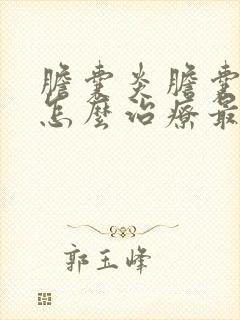 膽囊炎膽囊
怎麼治療最
郭玉峰